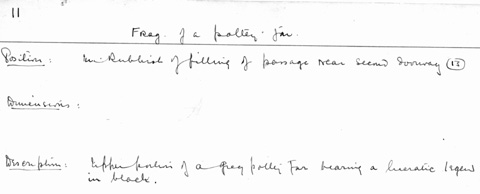 11
Frag. of a pottery Jar.
Position: In Rubbish of filling of passage near second doorway (13)
Dimensions:
Description: Upper portion of a grey pottery Jar bearing a hieratic legend
in black.